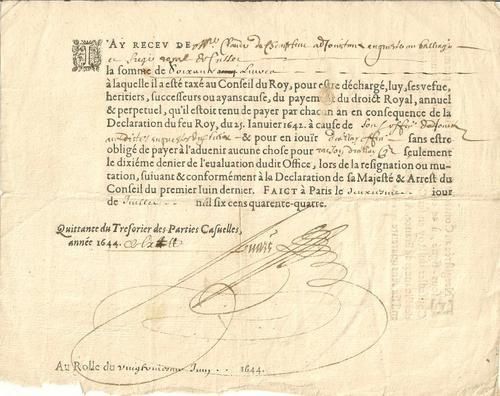 J'AY RECEV DE Mre Claude de
la somme de Soixante Livres
à laquelle il a esté taxé au Conseil du Roy, pour estre déchargé, luy, ses vefue,
heritiers, successeurs ou ayans cause, du payement du droict Royal, annuel
& perpetuel, qu'il estoit tenu de payer par chacun an en consequence de la
Declaration du feu Roy, du 25. Ianuier 1642. à cause de son office
& pour en iouïr sans estre
obligé de payer à l'aduenir aucune chose pour seulement
le dixiéme denier de l'eualuation dudit Office, lors de la resignation ou mu-
tation, suiuant & conformément à la Declaration de sa Majesté & Arrest du
Conseil du premier Iuin dernier. FAICT à Paris le deuxiesme iour
de Iuillet mil six cens quarente-quatre.
Quittance du Tresorier des Parties Casuelles,
année 1644.
Au Rolle du vingtroisiesme Juin 1644.